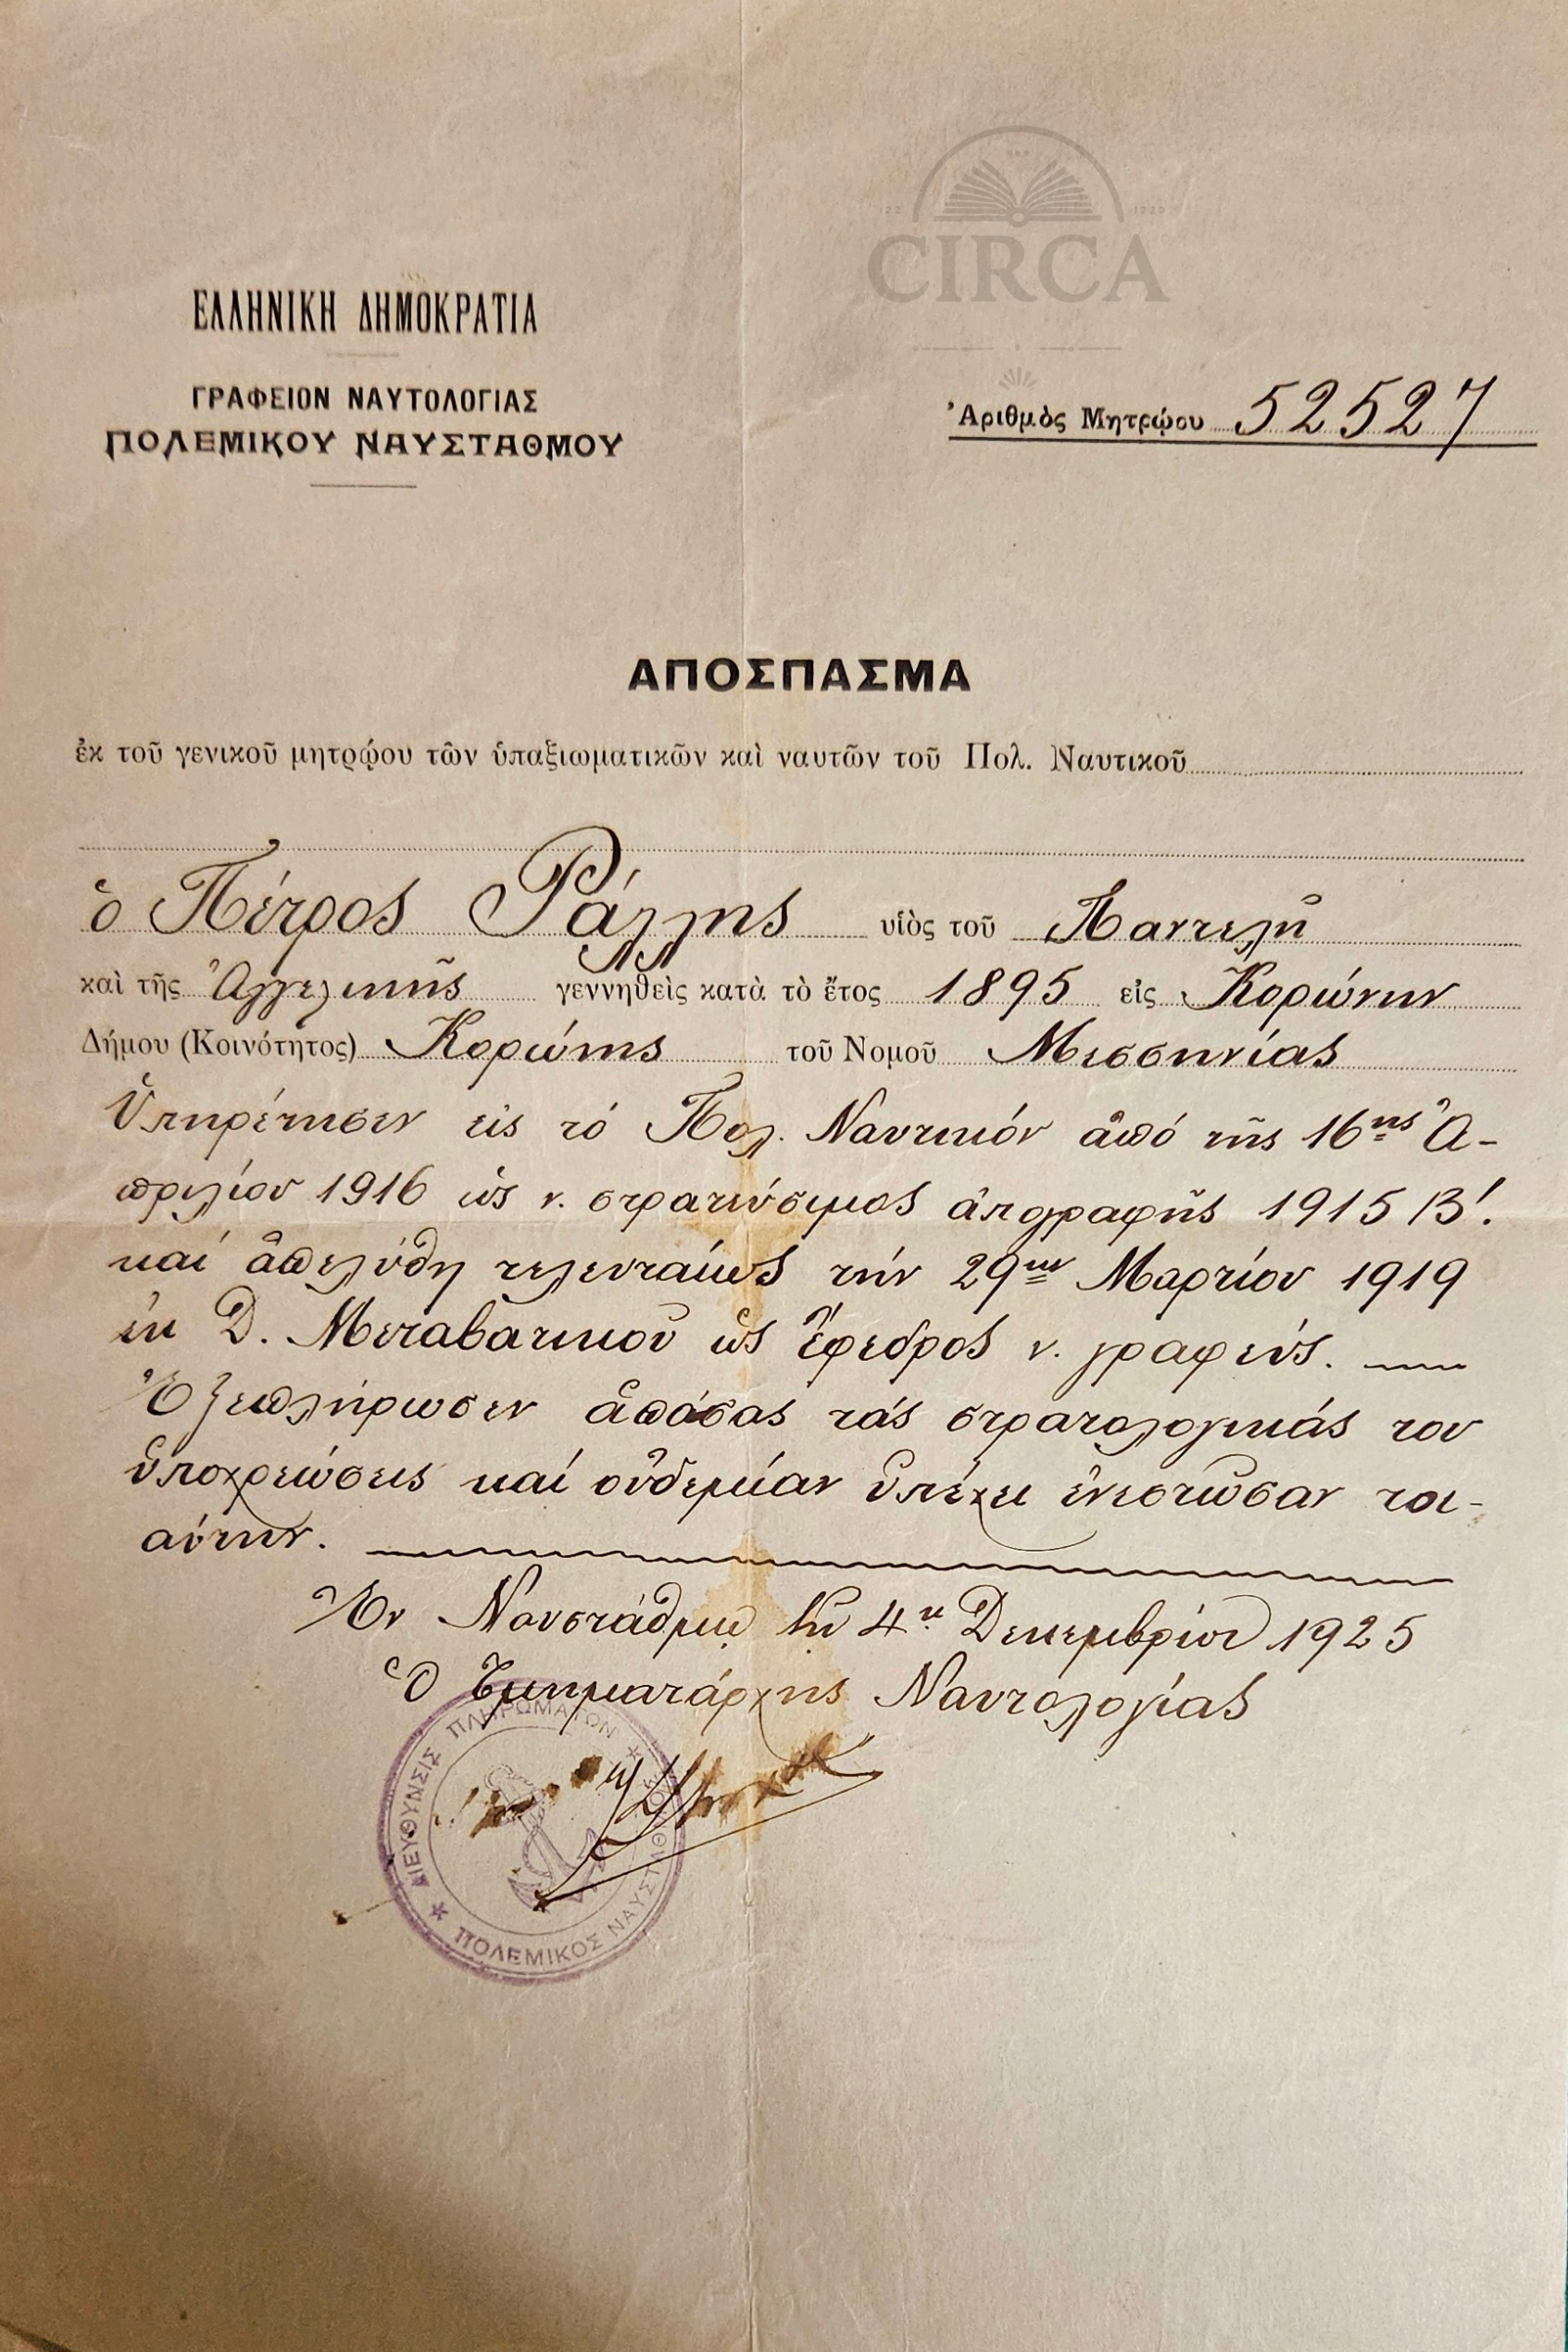 CIRCA
ΕΛΛΗΝΙΚΗ ΔΗΜΟΚΡΑΤΙΑ
ΓΡΑΦΕΙΟΝ ΝΑΥΤΟΛΟΓΙΑΣ
ΠΟΛΕΜΙΚΟΥ ΝΑΥΣΤΑΘΜΟΥ
Ἀριθμὸς Μητρῴου 52527
ΑΠΟΣΠΑΣΜΑ
ἐκ τοῦ γενικοῦ μητρῴου τῶν ὑπαξιωματικῶν καὶ ναυτῶν τοῦ Πολ. Ναυτικοῦ
ὁ Πέτρος Ράλλης υἱὸς τοῦ Παντελῆ
καὶ τῆς Ἀγγελικῆς γεννηθεὶς κατὰ τὸ ἔτος 1895 εἰς Κορώνην
Δήμου (Κοινότητος) Κορώνης τοῦ Νομοῦ Μεσσηνίας
Ὑπηρέτησεν εἰς τό Πολ. Ναυτικόν ἀπό τῆς 16ης Ἀ-
πριλίου 1916 ὡς ν. στρατεύσιμος ἀπογραφῆς 1915 Β!
καί ἀπελύθη τελευταίως τήν 29ην Μαρτίου 1919
ἐκ Δ. Μεταβατικοῦ ὡς Ἔφεδρος ν. γραφεύς.
Ἐξεπλήρωσεν ἁπάσας τάς στρατολογικάς του
ὑποχρεώσεις καί οὐδεμίαν ὑπέχει ἐνεστῶσαν τοι-
αύτην.
Ἐν Ναυστάθμῳ τῇ 4ῃ Δεκεμβρίου 1925
Ὁ Τμηματάρχης Ναυτολογίας
ΔΙΕΥΘΥΝΣΙΣ ΠΛΗΡΩΜΑΤΩΝ
ΠΟΛΕΜΙΚΟΣ ΝΑΥΣΤΑΘΜΟΣ